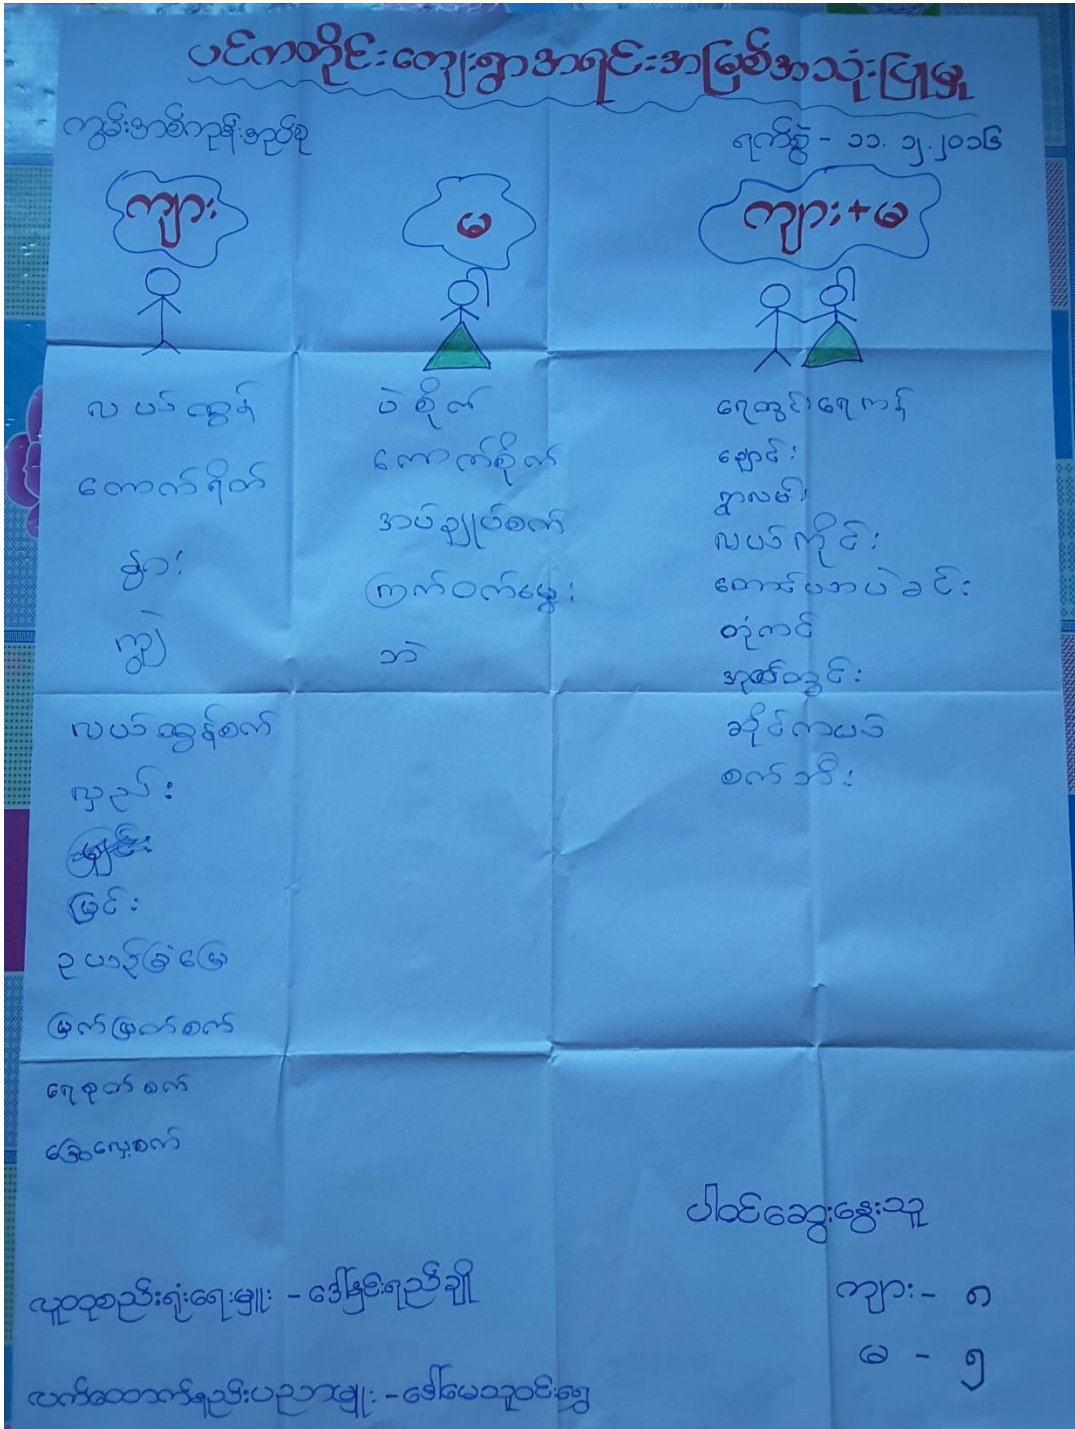 ပင်ကတိုင်းကျေးရွာအရင်းအမြစ်အသုံးပြုမှု
ကွမ်းအစ်ကုန်းအုပ်စု
ရက်စွဲ - ၁၁.၁၂.၂၀၁၆
ကျား
မ
ကျား+မ
လယ်ထွန်
ကောက်ရိတ်
နွား
ကျွဲ
လယ်ထွန်စက်
လှည်း
မြင်း
ဥယျာဉ်ခြံမြေ
မြက်ဖြတ်စက်
ရေစုတ်စက်
ခြွေလှေ့စက်
ပဲစိုက်
ကောက်စိုက်
အပ်ချုပ်စက်
ကြက်ဝက်မွေး
ဘဲ
ရေတွင်း၊ရေကန်
ချောင်း
ရွာလမ်း
လယ်ကွင်း
တောင်ယာပဲခင်း
တုံကင်
အုတ်တွင်း
ဆိုင်ကယ်
စက်ဘီး
ပါဝင်ဆွေးနွေးသူ
ကျား - ၈
မ - ၅
လူထုစည်းရုံးရေးမှူး - ဒေါ်နှင်းရည်ချို
လက်ထောက်နည်းပညာမှူး - ဒေါ်မေသူဝင်းရွှေ